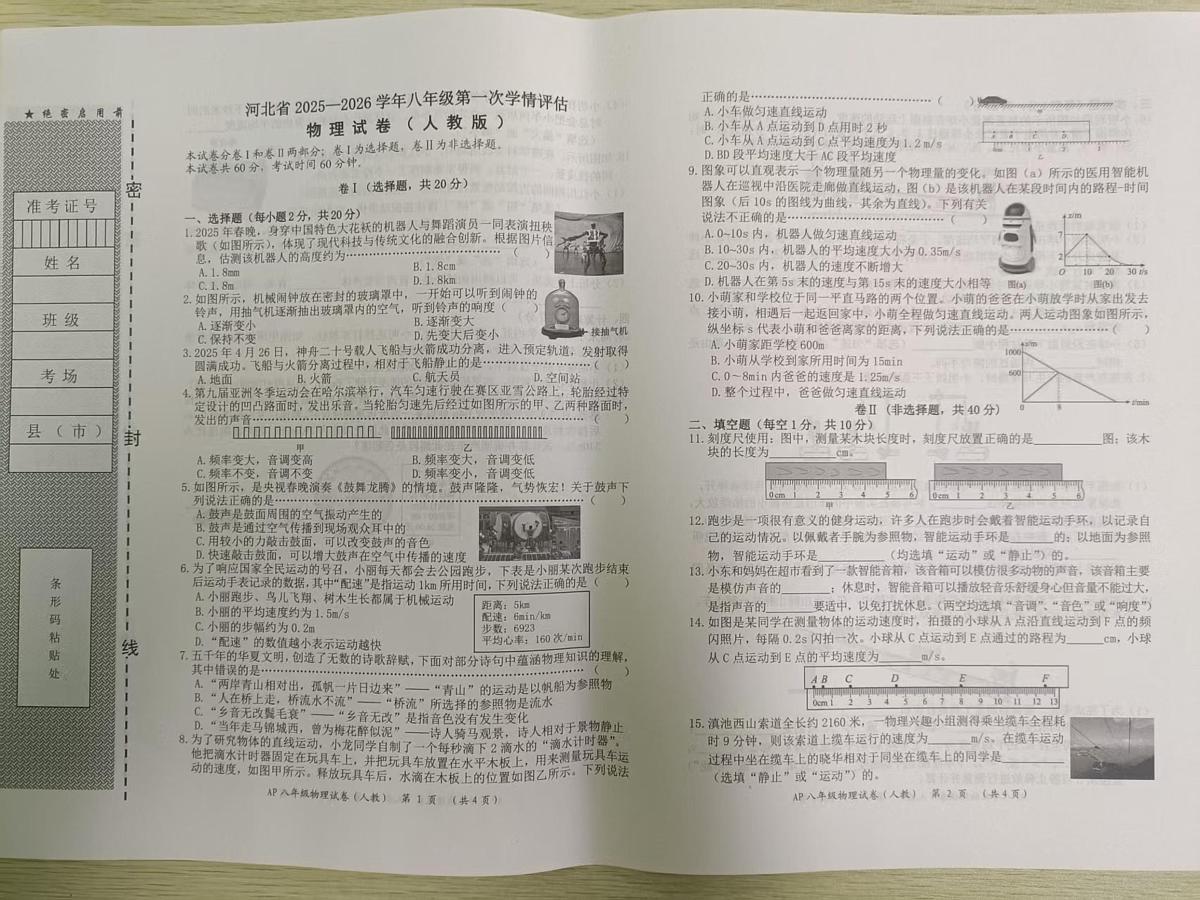 ★ 绝密启用前
准考证号
姓名
班级
考场
县（市）
条形码粘贴处
密
封
线
河北省 2025—2026 学年八年级第一次学情评估
物理试卷（人教版）
本试卷分卷Ⅰ和卷Ⅱ两部分；卷Ⅰ为选择题，卷Ⅱ为非选择题。
本试卷共 60 分，考试时间 60 分钟。
卷Ⅰ（选择题，共 20 分）
一、选择题（每小题 2 分，共 20 分）
1. 2025 年春晚，身穿中国特色大花袄的机器人与舞蹈演员一同表演扭秧
歌（如图所示），体现了现代科技与传统文化的融合创新。根据图片信
息，估测该机器人的高度约为………………………………（    ）
A. 1.8mm B. 1.8cm
C. 1.8m D. 1.8km
2. 如图所示，机械闹钟放在密封的玻璃罩中，一开始可以听到闹钟的
铃声，用抽气机逐渐抽出玻璃罩内的空气，听到铃声的响度（    ）
A. 逐渐变小 B. 逐渐变大
C. 保持不变 D. 先变大后变小
接抽气机
3. 2025 年 4 月 26 日，神舟二十号载人飞船与火箭成功分离，进入预定轨道，发射取得
圆满成功。飞船与火箭分离过程中，相对于飞船静止的是………………（    ）
A. 地面 B. 火箭 C. 航天员 D. 空间站
4. 第九届亚洲冬季运动会在哈尔滨举行，汽车匀速行驶在赛区亚雪公路上，轮胎经过特
定设计的凹凸路面时，发出乐音。当轮胎匀速先后经过如图所示的甲、乙两种路面时，
发出的声音………………………………………………（    ）
甲 乙
A. 频率变大，音调变高 B. 频率变大，音调变低
C. 频率不变，音调不变 D. 频率变小，音调变低
5. 如图所示，是央视春晚演奏《鼓舞龙腾》的情境。鼓声隆隆，气势恢宏！关于鼓声下
列说法正确的是………………………………………………（    ）
A. 鼓声是鼓面周围的空气振动产生的
B. 鼓声是通过空气传播到现场观众耳中的
C. 用较小的力敲击鼓面，可以改变鼓声的音色
D. 快速敲击鼓面，可以增大鼓声在空气中传播的速度
6. 为了响应国家全民运动的号召，小丽每天都会去公园跑步，下表是小丽某次跑步结束
后运动手表记录的数据，其中“配速”是指运动 1km 所用时间，下列说法正确的是（    ）
A. 小丽跑步、鸟儿飞翔、树木生长都属于机械运动
B. 小丽的平均速度约为 1.5m/s
C. 小丽的步幅约为 0.2m
D. “配速”的数值越小表示运动越快
距离：5km
配速：6min/km
步数：6923
平均心率：160 次/min
7. 五千年的华夏文明，创造了无数的诗歌辞赋，下面对部分诗句中蕴涵物理知识的理解，
其中错误的是………………………………………………（    ）
A. “两岸青山相对出，孤帆一片日边来”——“青山”的运动是以帆船为参照物
B. “人在桥上走，桥流水不流”——“桥流”所选择的参照物是流水
C. “乡音无改鬓毛衰”——“乡音无改”是指音色没有发生变化
D. “当年走马锦城西，曾为梅花醉似泥”——诗人骑马观景，诗人相对于景物静止
8. 为了研究物体的直线运动，小龙同学自制了一个每秒滴下 2 滴水的“滴水计时器”。
他把滴水计时器固定在玩具车上，并把玩具车放置在水平木板上，用来测量玩具车运
动的速度，如图甲所示。释放玩具车后，水滴在木板上的位置如图乙所示。下列说法
AP 八年级物理试卷（人教） 第 1 页 （共 4 页）
正确的是………………………………（    ）
A. 小车做匀速直线运动
B. 小车从 A 点运动到 D 点用时 2 秒
C. 小车从 A 点运动到 C 点平均速度为 1.2 m/s
D. BD 段平均速度大于 AC 段平均速度
乙
9. 图象可以直观表示一个物理量随另一个物理量的变化。如图（a）所示的医用智能机
器人在巡视中沿医院走廊做直线运动，图（b）是该机器人在某段时间内的路程-时间
图象（后 10s 的图线为曲线，其余为直线）。下列有关
说法不正确的是…………………………（    ）
A. 0~10s 内，机器人做匀速直线运动
B. 10~30s 内，机器人的平均速度大小为 0.35m/s
C. 20~30s 内，机器人的速度不断增大
D. 机器人在第 5s 末的速度与第 15s 末的速度大小相等
s/m
7
2
0 10 20 30 t/s
图(a) 图(b)
10. 小萌家和学校位于同一平直马路的两个位置。小萌的爸爸在小萌放学时从家出发去
接小萌，相遇后一起返回家中，小萌全程做匀速直线运动。两人运动图象如图所示，
纵坐标 s 代表小萌和爸爸离家的距离，下列说法正确的是………………（    ）
A. 小萌家距学校 600m
B. 小萌从学校到家所用时间为 15min
C. 0~8min 内爸爸的速度是 1.25m/s
D. 整个过程中，爸爸做匀速直线运动
s/m
1000
600
0 8 t/min
卷Ⅱ（非选择题，共 40 分）
二、填空题（每空 1 分，共 10 分）
11. 刻度尺使用：图中，测量某木块长度时，刻度尺放置正确的是________图；该木
块的长度为________cm。
0cm 1 2 3 4 5 6
甲
0cm 1 2 3 4 5 6
乙
12. 跑步是一项很有意义的健身运动，许多人在跑步时会戴着智能运动手环，以记录自
己的运动情况。以佩戴者手腕为参照物，智能运动手环是______的；以地面为参照
物，智能运动手环是________（均选填“运动”或“静止”）的。
13. 小东和妈妈在超市看到了一款智能音箱，该音箱可以模仿很多动物的声音，该音箱主要
是模仿声音的______；休息时，智能音箱可以播放轻音乐舒缓身心但音量不能过大，
是指声音的______要适中，以免打扰休息。（两空均选填“音调”、“音色”或“响度”）
14. 如图是某同学在测量物体的运动速度时，拍摄的小球从 A 点沿直线运动到 F 点的频
闪照片，每隔 0.2s 闪拍一次。小球从 C 点运动到 E 点通过的路程为______cm，小球
从 C 点运动到 E 点的平均速度为______m/s。
A B C D E F
0cm 1 2 3 4 5 6 7 8 9 10 11 12 13
15. 滇池西山索道全长约 2160 米，一物理兴趣小组测得乘坐缆车全程耗
时 9 分钟，则该索道上缆车运行的速度为______m/s。在缆车运动
过程中坐在缆车上的晓华相对于同坐在缆车上的同学是______
（选填“静止”或“运动”）的。
AP 八年级物理试卷（人教） 第 2 页 （共 4 页）